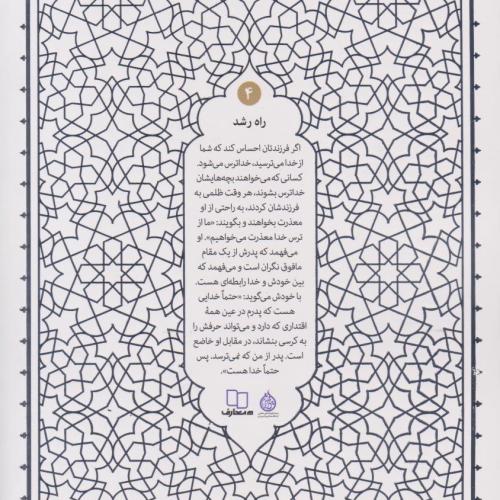 ۴
راه رشد
اگر فرزندتان احساس کند که شما
از خدا می‌ترسید، خداترس می‌شود.
کسانی که می‌خواهند بچه‌هایشان
خداترس بشوند، هر وقت ظلمی به
فرزندشان کردند، به راحتی از او
معذرت بخواهند و بگویند: «ما از
ترس خدا معذرت می‌خواهیم». او
می‌فهمد که پدرش از یک مقام
مافوق نگران است و می‌فهمد که
بین خودش و خدا رابطه‌ای هست.
با خودش می‌گوید: «حتماً خدایی
هست که پدرم در عین همهٔ
اقتداری که دارد و می‌تواند حرفش را
به کرسی بنشاند، در مقابل او خاضع
است. پدر از من که نمی‌ترسد. پس
حتماً خدا هست».
معارف